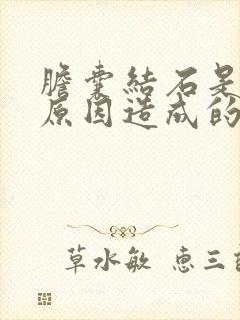 膽囊結石是
原因造成的
草水敏 惠三